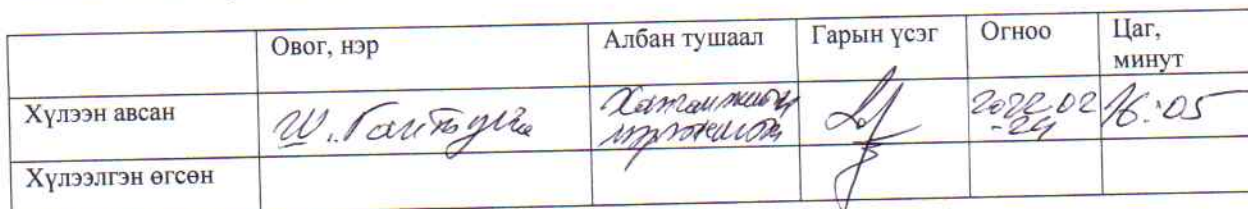 Овог, нэр Албан тушаал Гарын үсэг Огноо Цаг, минут
Хүлээн авсан Ш. Гантулга мэргэжилтэн 2022.02-24 16:05
Хүлээлгэн өгсөн